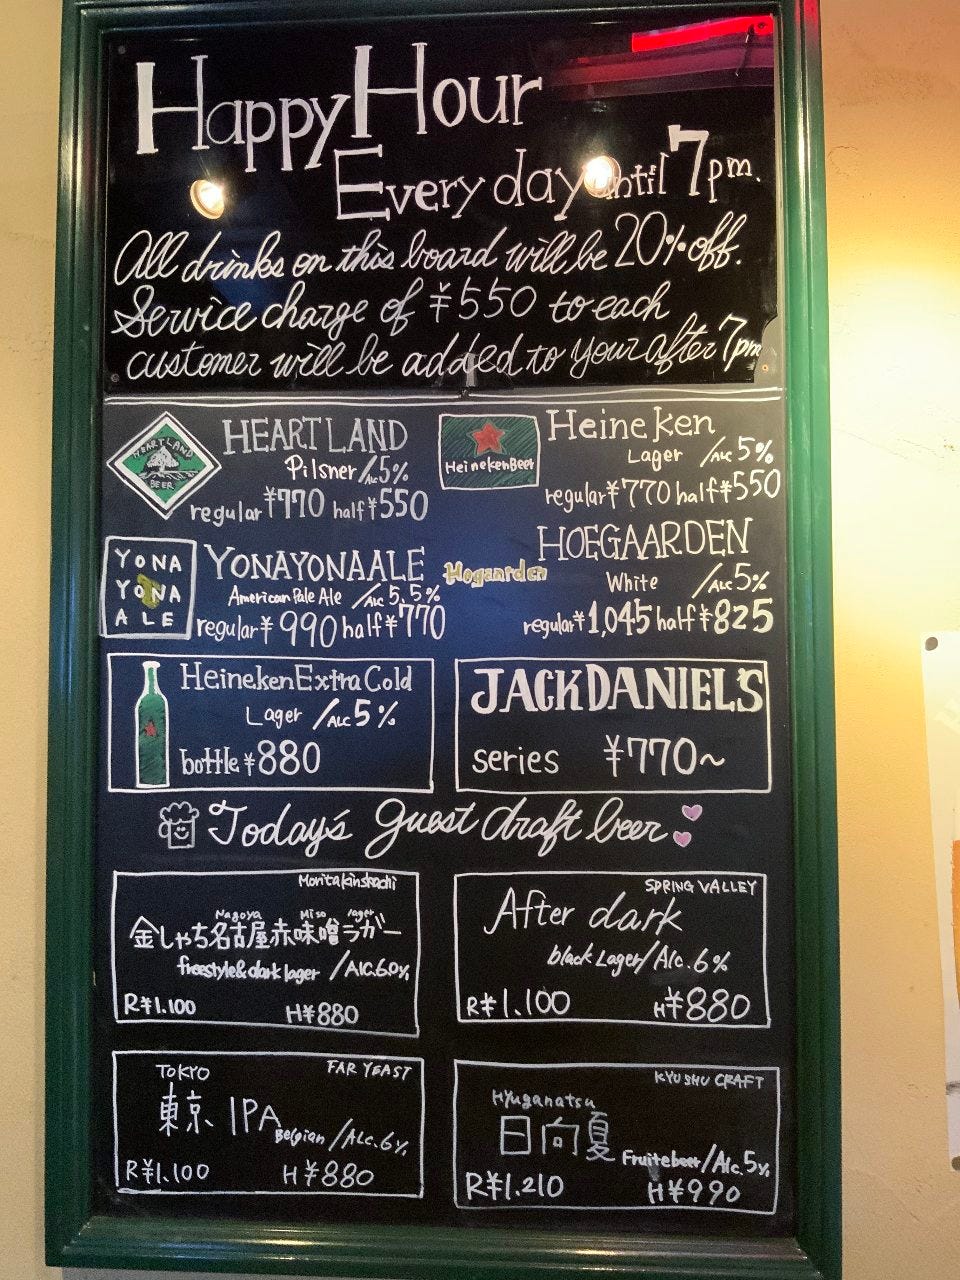 Happy Hour
Every day until 7pm.
All drinks on this board will be 20% off.
Service charge of ¥550 to each
customer will be added to your after 7pm
HEARTLAND
BEER
HEARTLAND
Pilsner/Alc5%
regular¥770 half¥550
HeinekenBeer
Heineken
Lager /Alc 5%
regular¥770 half¥550
YONA
YONA
ALE
YONAYONAALE
American Pale Ale /Alc 5.5%
regular¥990 half¥770
Hogaarden
HOEGAARDEN
White /Alc5%
regular¥1,045 half¥825
Heineken Extra Cold
Lager /Alc 5%
bottle¥880
JACK DANIEL'S
series ¥770~
Today's guest draft beer
Nagoya Miso lager
金しゃち名古屋赤味噌ラガー
freestyle&dark lager /Alc.6.0%
R¥1.100 H¥880
SPRING VALLEY
After dark
black Lager/Alc.6%
R¥1.100 H¥880
FAR YEAST
TOKYO
東京 IPA
Belgian /Alc.6%
R¥1.100 H¥880
KYUSHU CRAFT
Hyuganatsu
日向夏
Fruitebeer/Alc.5%
R¥1.210 H¥990